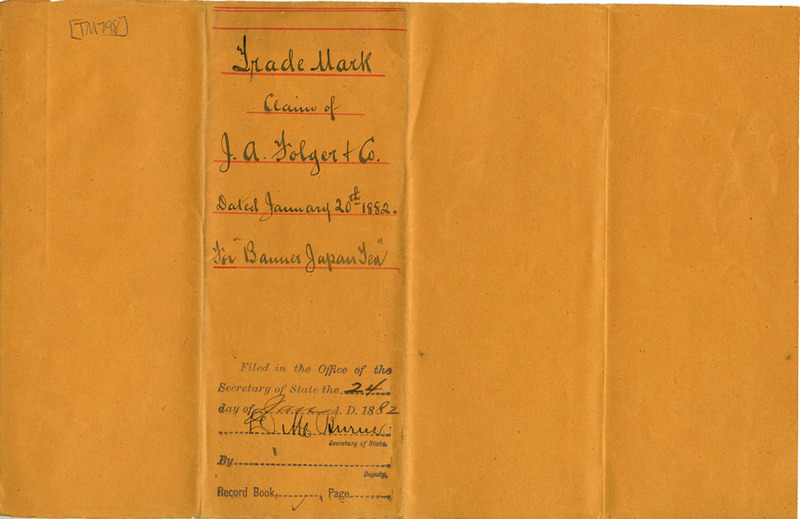 [TM798]
Trade Mark
Claim of
J. A. Folger & Co.
Dated January 20th 1882.
For "Banner Japan Tea"
Filed in the Office of the
Secretary of State the 24
day of Jan A. D. 1882
D M Burns
Secretary of State.
By
Deputy.
Record Book, Page